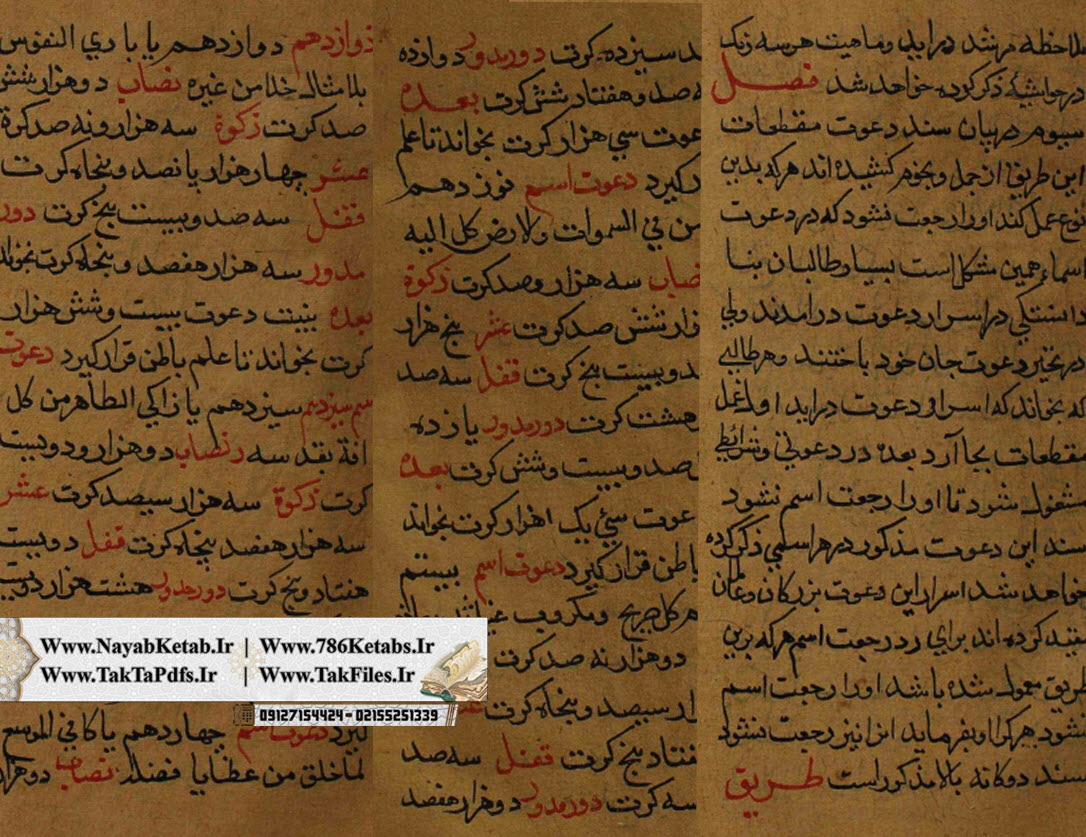 ملاحظه مرشد درآید وماهیت هر سه زنک
در حواشیهٔ ذکر کرده خواهد شد فصل
سیوم در بیان سند دعوت مقطعات
این طریق از جمل و بجوم کشیده اند هر که بدین
نوع عمل کند اورا رجعت نشود که در دعوت
اسماء همین مشکل است بسیار طالبان بنا
دانستکی در اسرار دعوت درآمدند ولی
در تحیر دعوت جان خود باختند وهر طالبی
که بخواند که اسرار دعوت درآید اول عمل
مقطعات بجا آرد بعده در دعوتی وشرائط
مشغول شود تا اورا رجعت اسم نشود
سند این دعوت مذکور در هر اسمی ذکر کرده
خواهد شد اسرار این دعوت بزرکان
کرده اند برای رد رجعت اسم هر که برین
طریق معمول شده باشد اورا رجعت اسم
نشود هر کرا او بفرماید انرا نیز رجعت نشود
سند دوکانه بالا مذکور است طریق
سیزده کرت دورمدور دوازده
صد وهفتاد شش کرت بعده
دعوت سی هزار کرت بخواند تا علم
کیرد دعوت اسم نوزدهم
من في السموات والارض کل الیه
نصاب سه هزار وصد کرت زکوة
هزار شش صد کرت عشر پنج هزار
صد وبیست پنج کرت قفل سه صد
هشت کرت دورمدور یازده
صد وبیست وشش کرت بعده
دعوت سی یک هزار کرت بخواند
باطن قرار کیرد دعوت اسم بیستم
کل صریخ ومکروب
دوهزار نه صد کرت
سیصد وپنجاه کرت
هفتاد پنج کرت قفل سه صد
سه کرت دورمدور دوهزار هفصد
دوازدهم دوازدهم یا باري النفوس
بلا مثال خلا من غیره نصاب دوهزار شش
صد کرت زکوة سه هزار ونه صد کرة
عشر چهار هزار پانصد وپنجاه کرت
قفل سه صد وبیست پنج کرت دور
مدور سه هزار هفصد وپنجاه کرت بخواند
بعده بنیت دعوت بیست وشش هزار
کرت بخواند تا علم باطن قرار کیرد دعوت
اسم سیزدهم سیزدهم یا زاکي الطاهر من کل
افة بقد سه نصاب دوهزار ودویست
کرت زکوة سه هزار سیصد کرت عشر
سه هزار هفصد پنجاه کرت قفل دویست
هفتاد وپنج کرت دورمدور هشت هزار دویست
Www.NayabKetab.Ir | Www.786Ketabs.Ir
Www.TakTaPdfs.Ir | Www.TakFiles.Ir
09127154424 - 02155251339
کیرد دعوت اسم چهاردهم یا کافي الموسع
لما خلق من عطایا فضله نصاب دوهزار